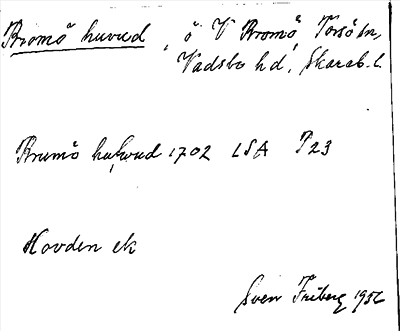 Bromö huvud, ö V Bromö, Torsö sn,
Vadsbo hd, Skarab. l.
Brumö hufwud 1702 LSA P23
Hovden ek
Sven Friberg 1956